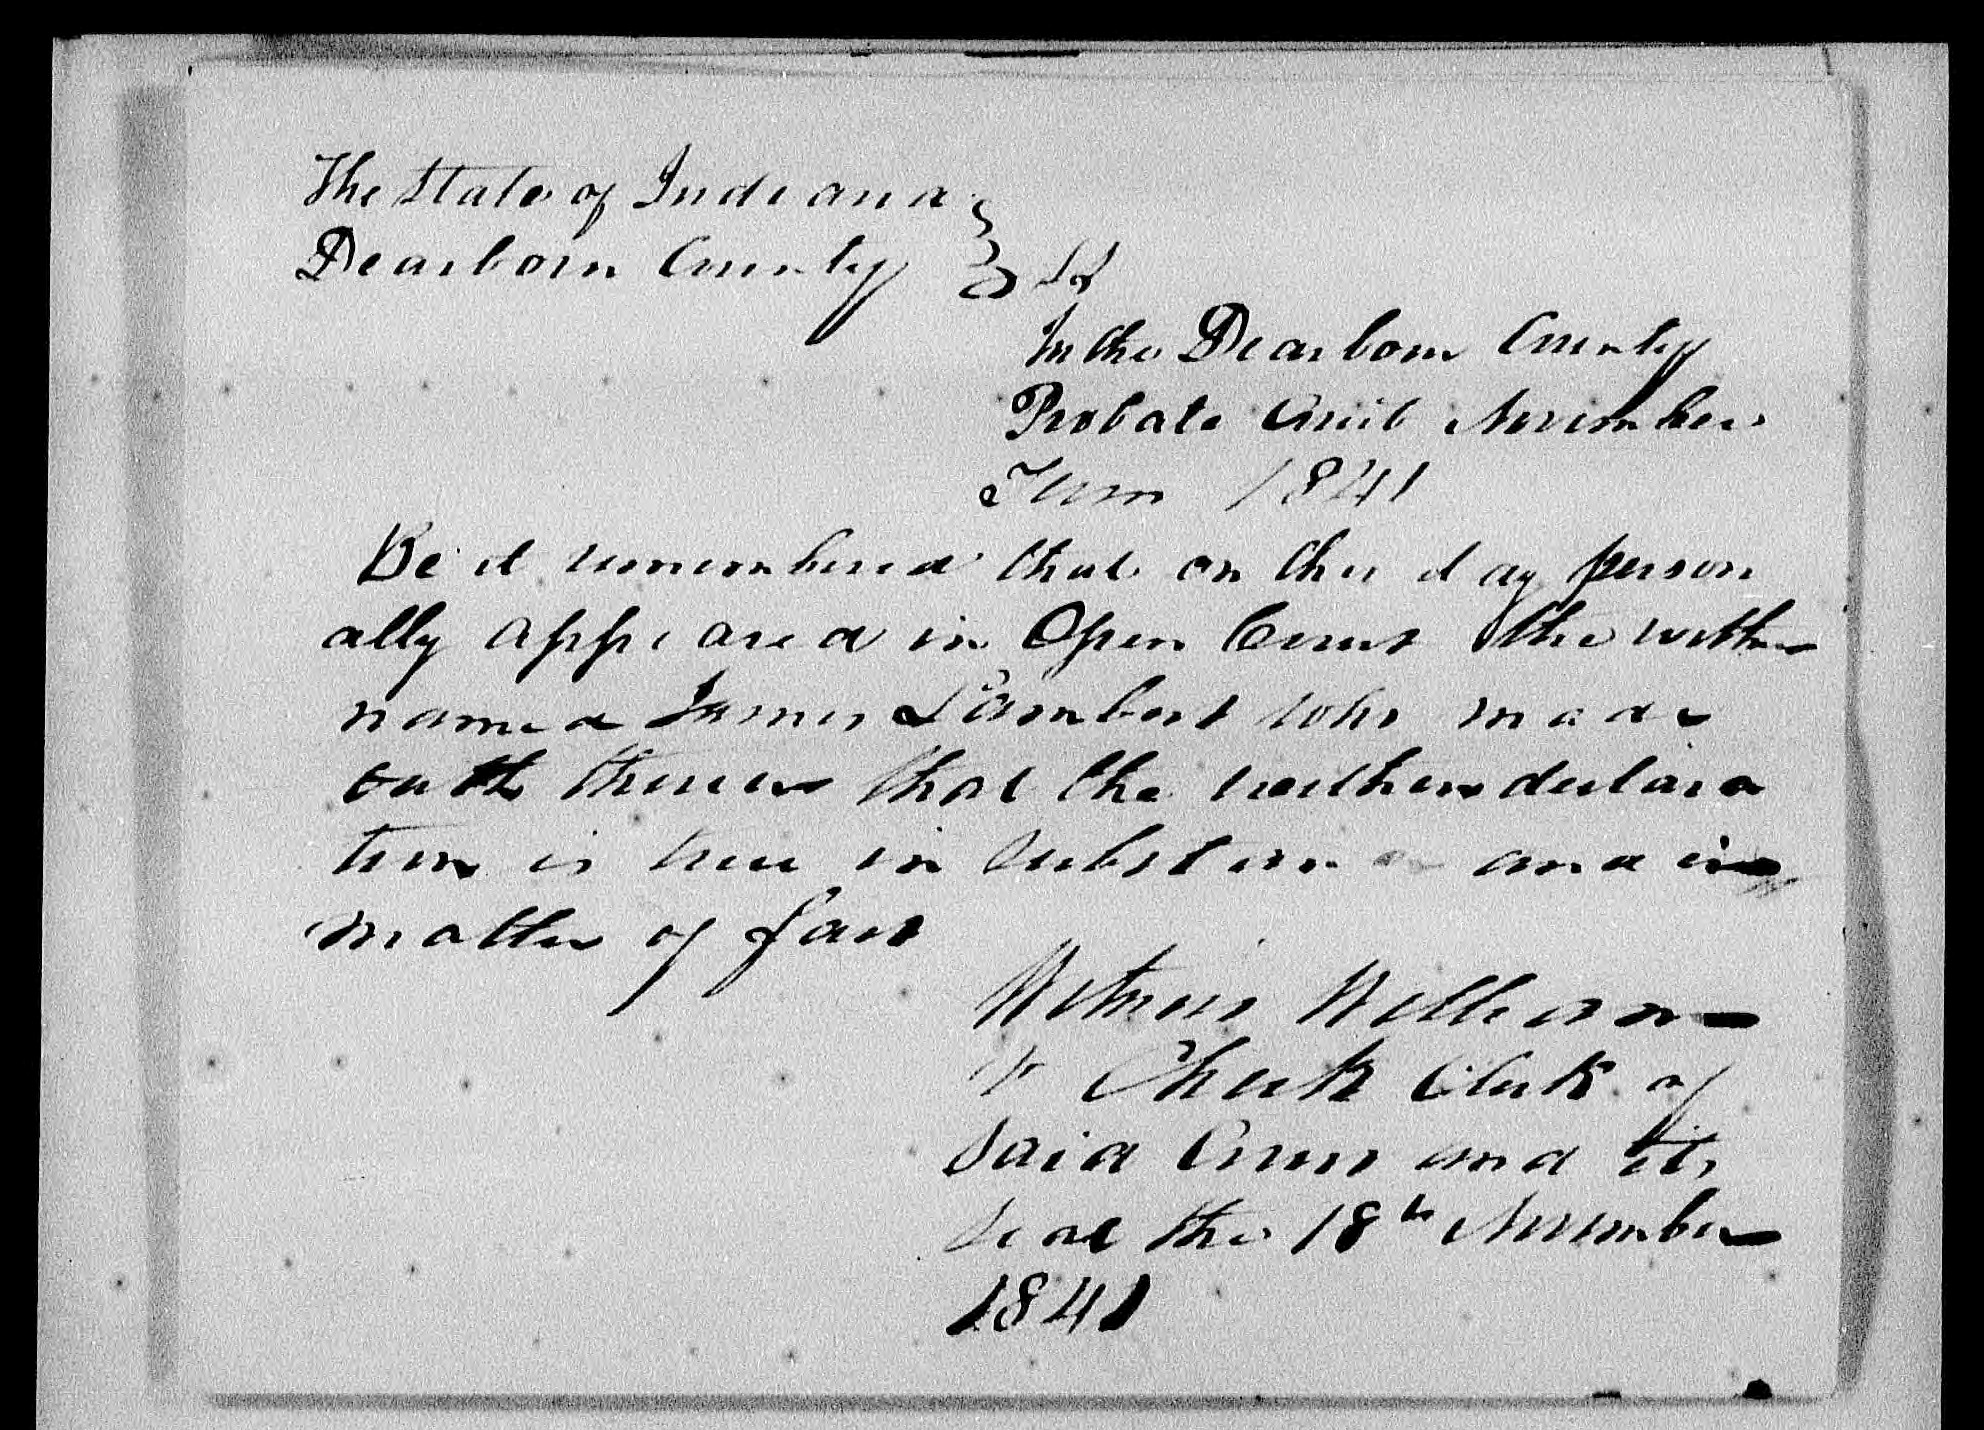 The State of Indiana
Dearborn County } SS
In the Dearborn County
Probate Court November
Term 1841
Be it remembered that on this day person
ally appeared in Open Court the within
named James Lambert who made
oath thereto that the within declara
tion is true in Substance and in
matter of fact
Witness William
V Cheek Clerk of
Said Court and its
Seal this 18th November
1841